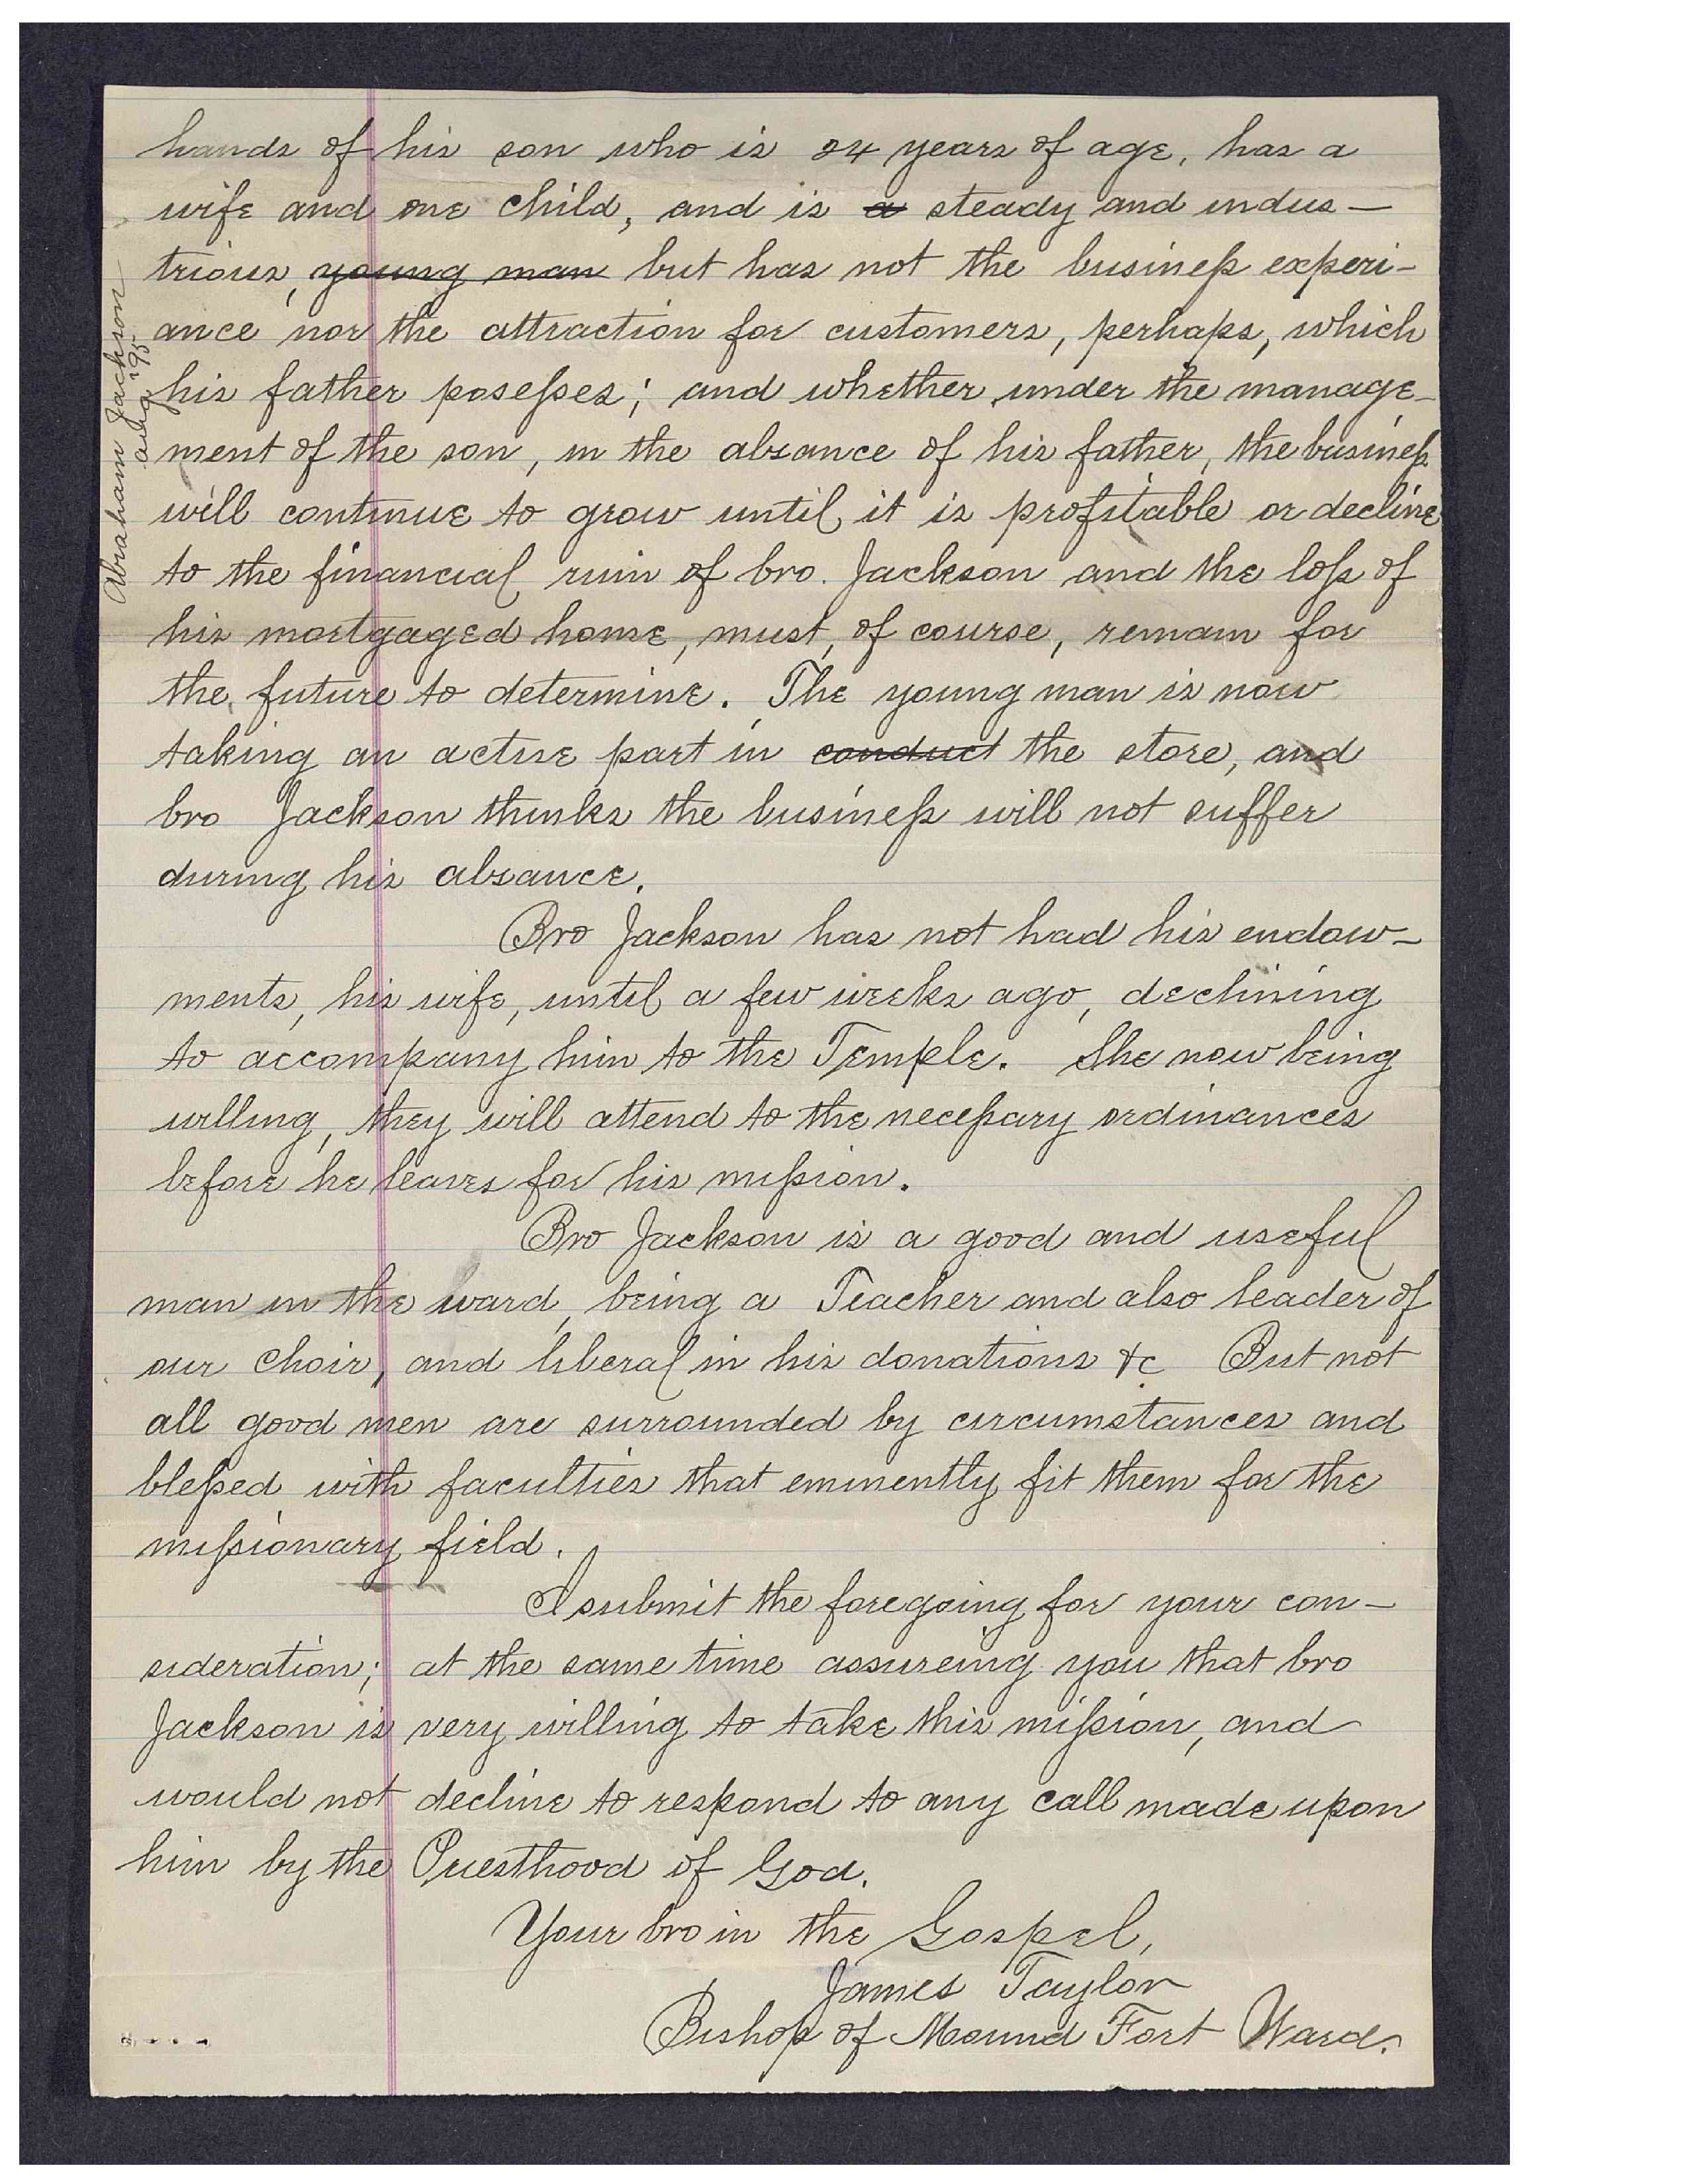 hands of his son who is 24 years of age, has a
wife and one child, and is a steady and indus—
trious, young man but has not the business experi-
ance nor the attraction for customers, perhaps, which
his father posesses; and whether under the manage-
ment of the son, in the absance of his father, the business
will continue to grow until it is profitable or decline
to the financial ruin of bro. Jackson and the loss of
his mortgaged home, must, of course, remain for
the future to determine. The young man is now
taking an active part in conduct the store, and
bro Jackson thinks the business will not suffer
during his absance.
Bro Jackson has not had his endow-
ments, his wife, until a few weeks ago, declining
to accompany him to the Temple. She now being
willing, they will attend to the necessary ordinances
before he leaves for his mission.
Bro Jackson is a good and useful
man in the ward, being a Teacher and also leader of
our choir, and liberal in his donations &c But not
all good men are surrounded by circumstances and
blessed with faculties that eminently fit them for the
missionary field.
I submit the foregoing for your con-
sideration; at the same time assureing you that bro
Jackson is very willing to take this mission, and
would not decline to respond to any call made upon
him by the Priesthood of God.
Your bro in the Gospel,
James Taylor
Bishop of Mound Fort Ward.
Abraham Jackson
Aug '95